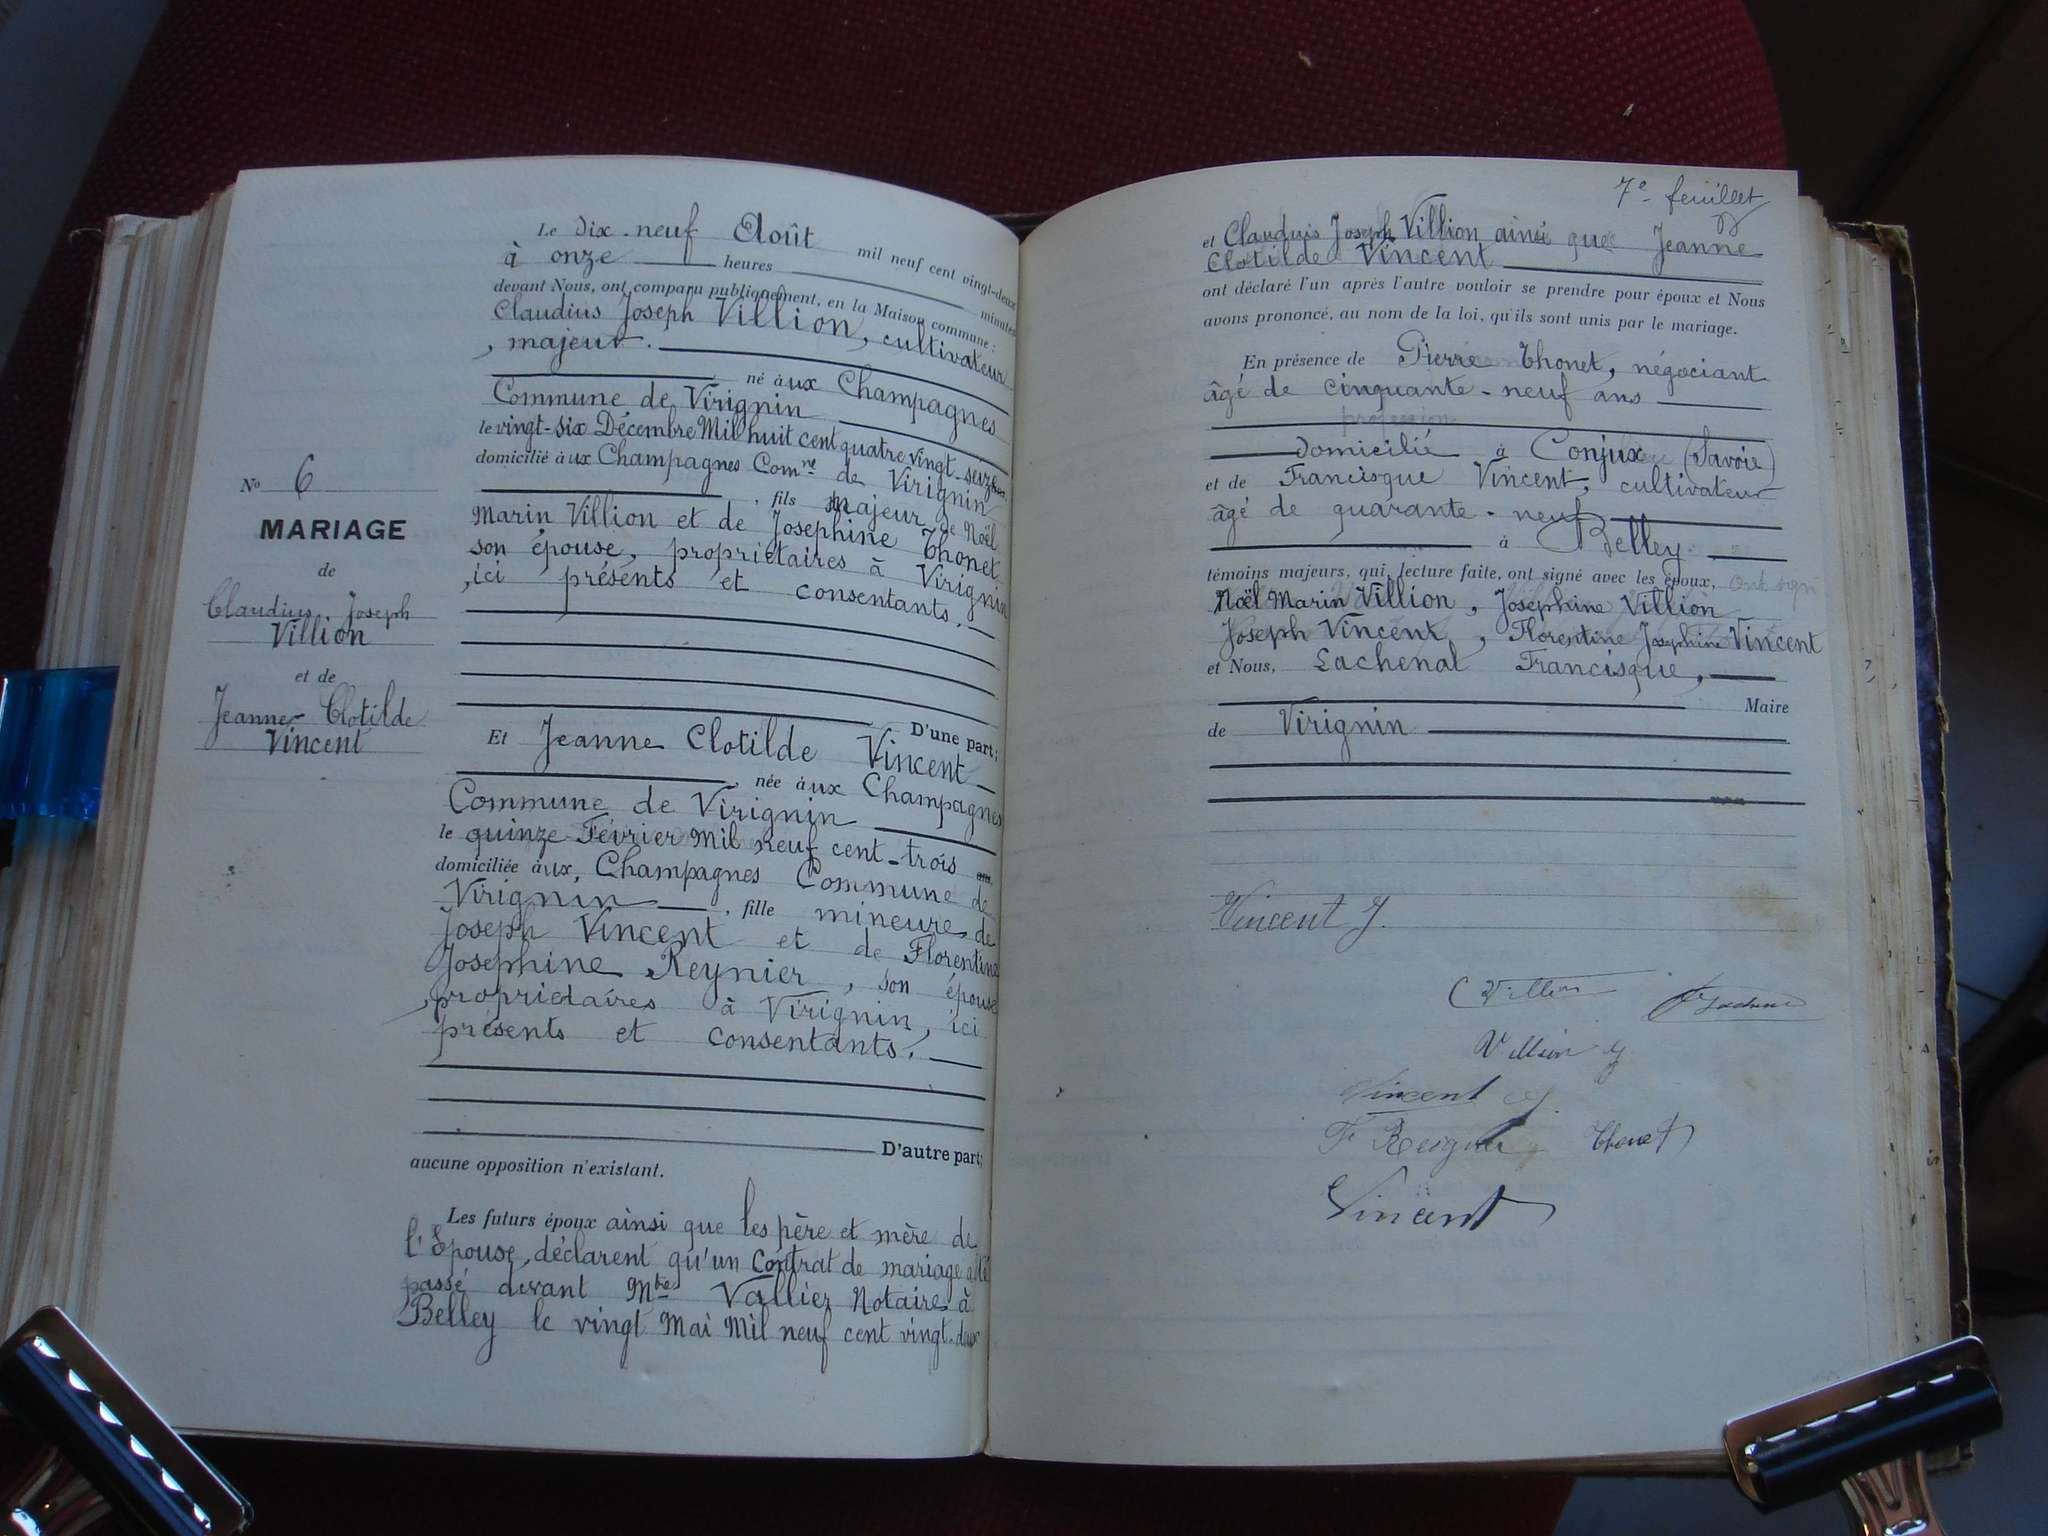 No 6
MARIAGE
de
Claudius Joseph
Villion
et de
Jeanne Clotilde
Vincent
Le dix-neuf Août mil neuf cent vingt-deux
à onze heures minutes
devant Nous, ont comparu publiquement, en la Maison commune :
Claudius Joseph Villion, cultivateur
, majeur.
né à ux Champagnes
Commune de Virignin
le vingt-six Décembre Mil huit cent quatre vingt-seize
domicilié à ux Champagnes Comne de Virignin
, fils majeur de Noël
Marin Villion et de Josephine Thonet
son épouse, propriétaires à Virignin
, ici présents et consentants.
D'une part;
Et Jeanne Clotilde Vincent
, née à ux Champagnes
Commune de Virignin
le quinze Février Mil neuf cent-trois
domiciliée à ux, Champagnes Commune de
Virignin, fille mineure de
Joseph Vincent et de Florentine
Josephine Reynier, son épouse
, propriétaires à Virignin, ici
présents et consentants.
D'autre part;
aucune opposition n'existant.
Les futurs époux ainsi que les père et mère de
l'Epouse, déclarent qu'un Contrat de mariage a été
passé devant Mtre Vallier Notaire à
Belley le vingt Mai Mil neuf cent vingt-deux
7e feuillet
et Claudius Joseph Villion ainsi que Jeanne
Clotilde Vincent
ont déclaré l'un après l'autre vouloir se prendre pour époux et Nous
avons prononcé, au nom de la loi, qu'ils sont unis par le mariage.
En présence de Pierre Thonet, négociant
âgé de cinquante-neuf ans
profession
domicilié à Conjux (Savoie)
et de Francisque Vincent, cultivateur
âgé de quarante-neuf
à Belley
témoins majeurs, qui, lecture faite, ont signé avec les époux, ont sign
Noël Marin Villion, Josephine Villion
Joseph Vincent, Florentine Josephine Vincent
et Nous, Lachenal Francisque,
Maire
de Virignin
Vincent J.
C Villion
Villion J
Vincent
F Thonet
Vincent